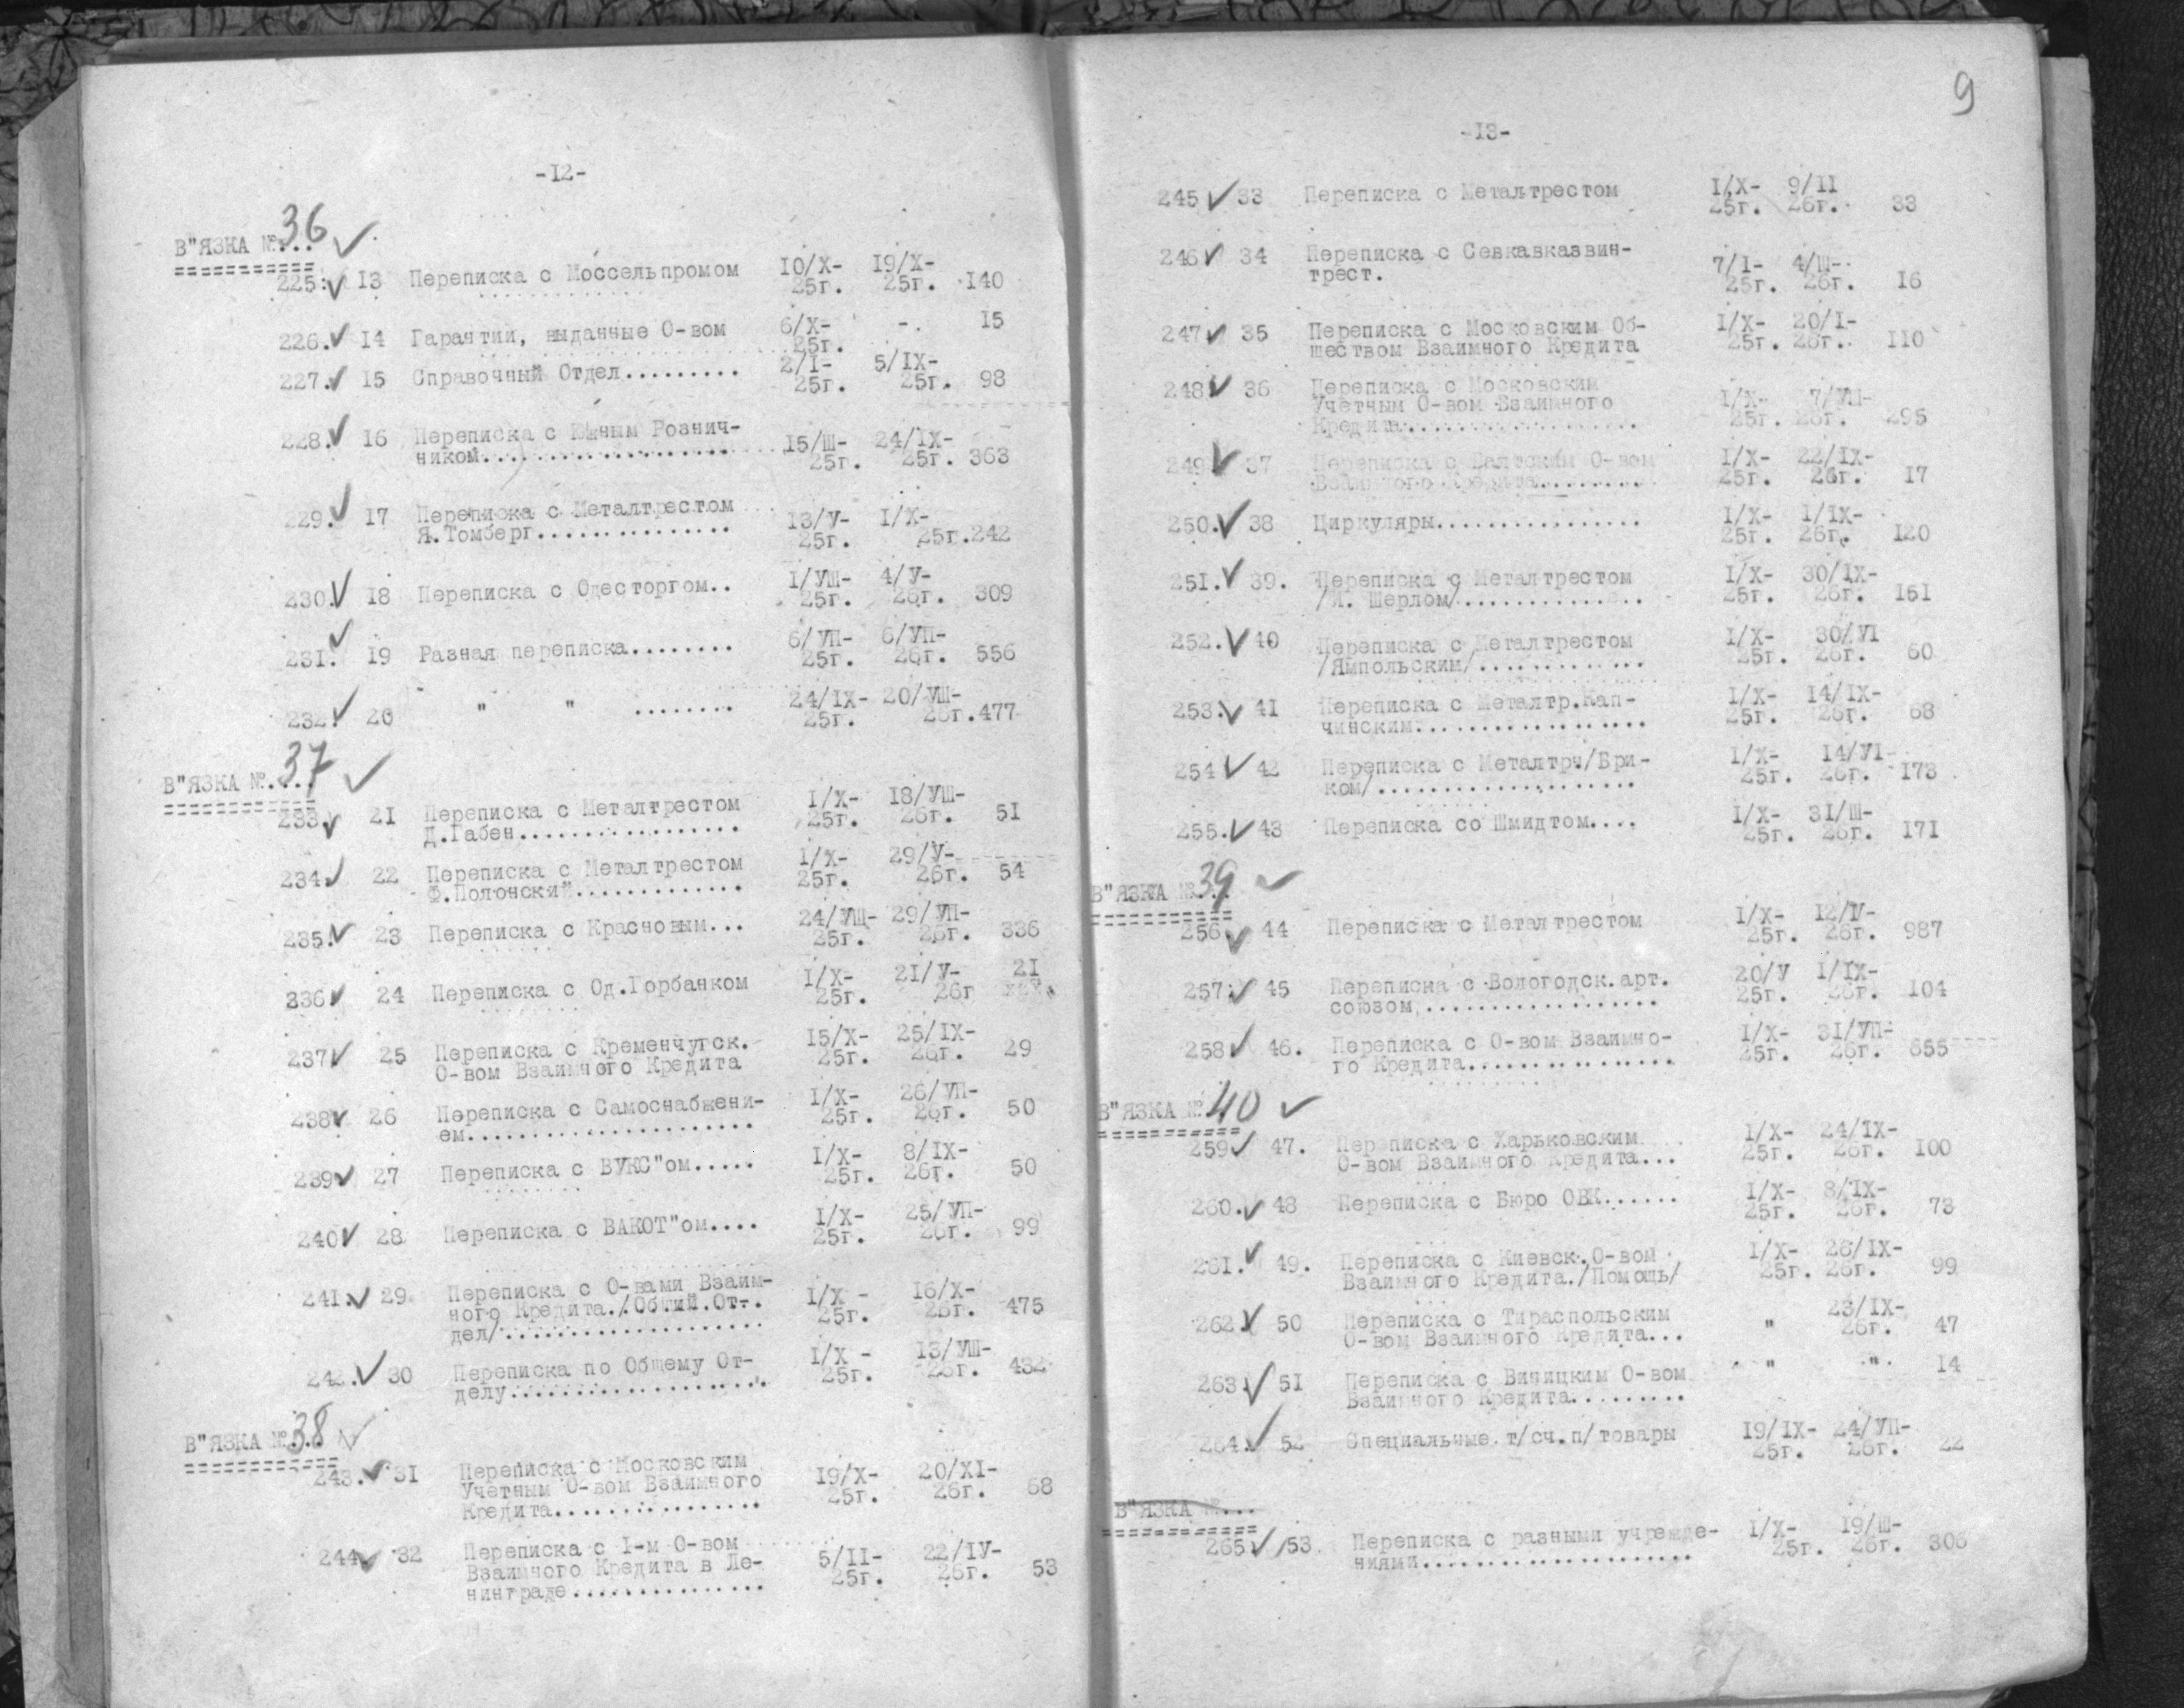 -12-
В"ЯЗКА №...36
225. 13 Переписка с Моссельпромом 10/X-25г. 19/X-25г. 140
226. 14 Гарантии, выданные О-вом 6/X-25г. -. 15
227. 15 Справочный Отдел......... 2/I-25г. 5/IX-25г. 98
228. 16 Переписка с Южным Рознич-
ником.................... 15/Ш-25г. 24/IX-25г. 363
229. 17 Переписка с Металтрестом
Я.Томберг............... 13/У-25г. 1/X-25г. 242
230. 18 Переписка с Одесторгом.. 1/УШ-25г. 4/У-26г. 309
231. 19 Разная переписка........ 6/УП-25г. 6/УП-26г. 556
232. 20 " " ........ 24/IX-25г. 20/УШ-26г. 477
В"ЯЗКА №....37
233. 21 Переписка с Металтрестом
Д.Габен................. 1/X-25г. 18/УШ-26г. 51
234. 22 Переписка с Металтрестом
Ф.Полонский............. 1/X-25г. 29/У-26г. 54
235. 23 Переписка с Красновым... 24/УШ-25г. 29/УП-26г. 336
236 24 Переписка с Од.Горбанком 1/X-25г. 21/У-26г 21
237 25 Переписка с Кременчугск.
О-вом Взаимного Кредита 15/X-25г. 25/IX-26г. 29
238 26 Переписка с Самоснабжени-
ем...................... 1/X-25г. 26/УП-26г. 50
239 27 Переписка с ВУКС"ом..... 1/X-25г. 8/IX-26г. 50
240 28 Переписка с ВАКОТ"ом.... 1/X-25г. 25/УП-26г. 99
241. 29 Переписка с О-вами Взаим-
ного Кредита./Общий.От-.
дел/.................... 1/X -25г. 16/X-26г. 475
242. 30 Переписка по Общему От-
делу.................... 1/X -25г. 13/УШ-26г. 432
В"ЯЗКА №...38
243. 31 Переписка с Московским
Учетным О-вом Взаимного
Кредита................ 19/X-25г. 20/XI-26г. 68
244 32 Переписка с I-м О-вом
Взаимного Кредита в Ле-
нинграде............... 5/II-25г. 22/IУ-26г. 53
9
-13-
245 33 Переписка с Металтрестом 1/X-25г. 9/II 26г. 33
246 34 Переписка с Севкавказвин-
трест. 7/I-25г. 4/Ш-26г. 16
247 35 Переписка с Московским Об-
ществом Взаимного Кредита 1/X-25г. 20/I-26г. 110
248 36 Переписка с Московским
Учетным О-вом Взаимного
Кредита................... 1/X-25г. 7/УП-26г. 295
249 37 Переписка с Балтским О-вом
Взаимного Кредита......... 1/X-25г. 22/IX-26г. 17
250. 38 Циркуляры................ 1/X-25г. 1/IX-26г. 120
251. 39. Переписка с Металтрестом
/И. Шерлом/............... 1/X-25г. 30/IX-26г. 151
252. 40 Переписка с Металтрестом
/Ямпольским/............. 1/X-25г. 30/УI 26г. 60
253. 41 Переписка с Металтр.Кап-
чинским.................. 1/X-25г. 14/IX-26г. 68
254 42 Переписка с Металтр./Бри-
ком/..................... 1/X-25г. 14/УI-26г. 173
255. 43 Переписка со Шмидтом.... 1/X-25г. 31/Ш-26г. 171
В"ЯЗКА №...39
256 44 Переписка с Металтрестом 1/X-25г. 12/У-26г. 987
257. 45 Переписка с Вологодск.арт.
союзом................... 20/У 25г. 1/IX-26г. 104
258 46. Переписка с О-вом Взаимно-
го Кредита................ 1/X-25г. 31/УП-26г. 655
В"ЯЗКА № 40
259 47. Переписка с Харьковским
О-вом Взаимного Кредита... 1/X-25г. 24/IX-26г. 100
260. 48 Переписка с Бюро ОВК...... 1/X-25г. 8/IX-26г. 73
261. 49. Переписка с Киевск.О-вом
Взаимного Кредита./Помощь/ 1/X-25г. 26/IX-26г. 99
262. 50 Переписка с Тираспольским
О-вом Взаимного Кредита... " 23/IX-26г. 47
263. 51 Переписка с Виницким О-вом
Взаимного Кредита......... " " 14
264. 52 Специальные т/сч.п/товары 19/IX-25г. 24/УП-26г. 22
В"ЯЗКА №...
265 53 Переписка с разными учрежде-
ниями..................... 1/X-25г. 19/Ш-26г. 306